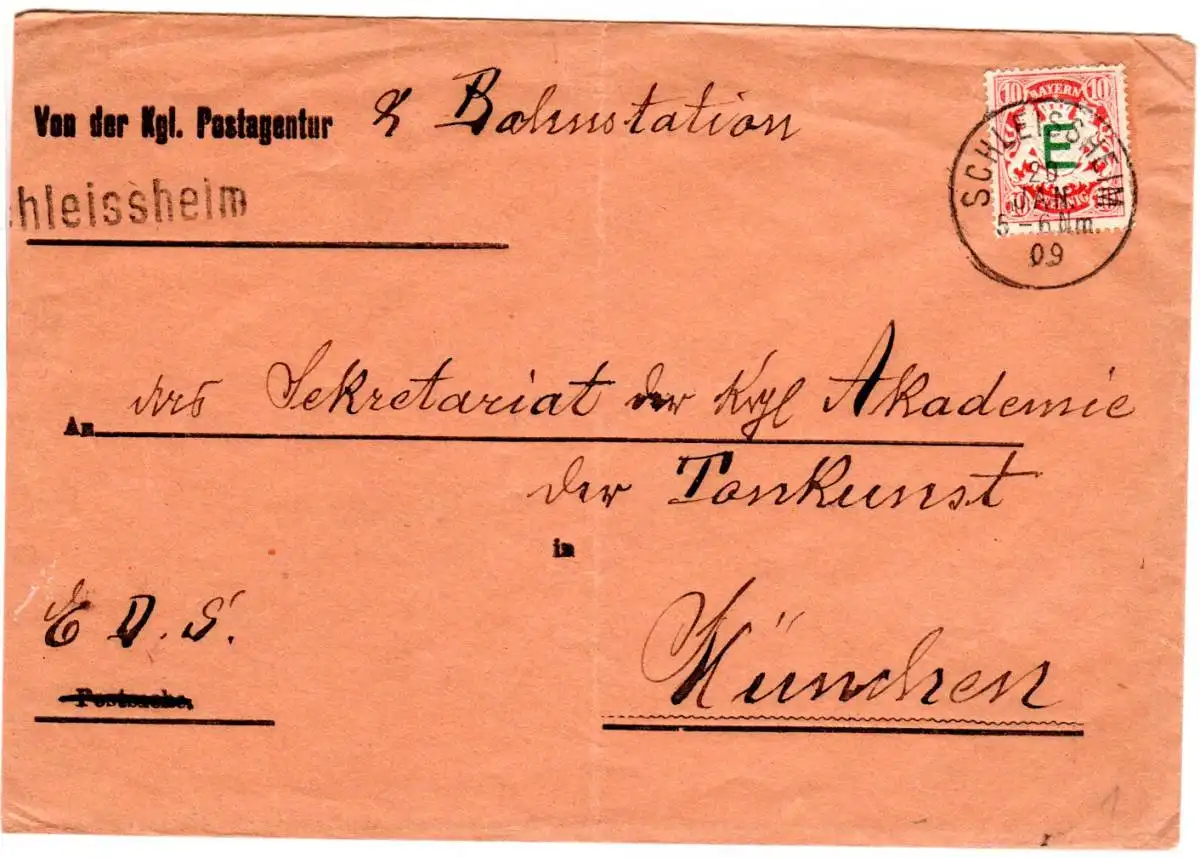 Von der Kgl. Postagentur & Bahnstation
chleissheim
10 BAYERN 10
E
10 PFENNIG
SCHLEISSHEIM
29
JAN.
5-6 Nm.
09
An das Sekretariat der Kgl Akademie
der Tonkunst
in
E D. S.
München
Postsache.